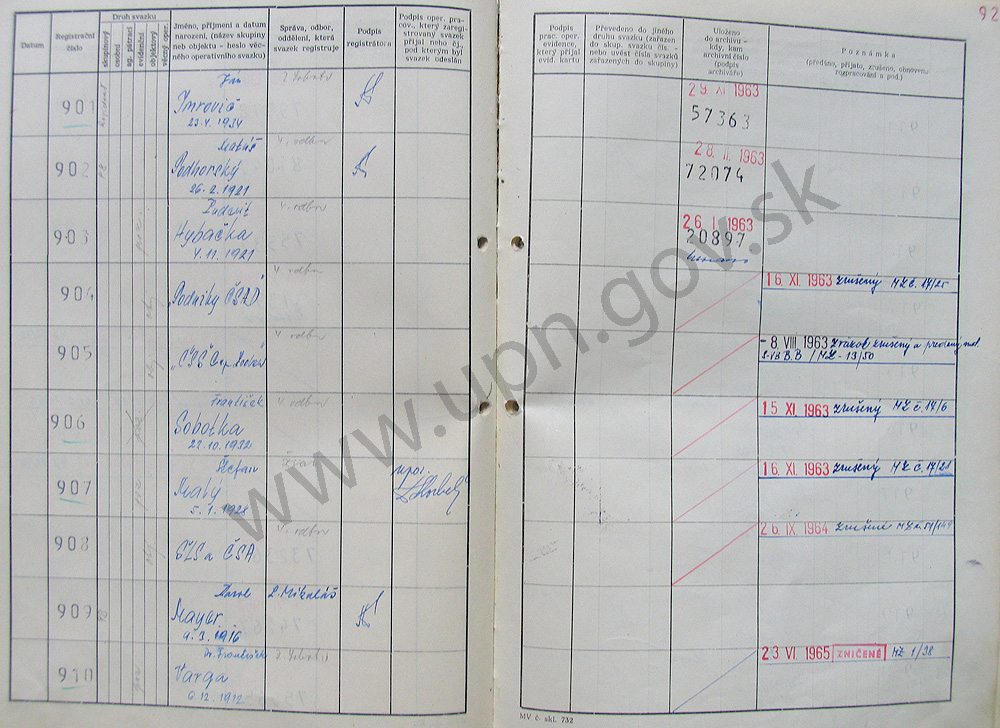 92
Datum
Registrační číslo
Druh svazku
skupinový
osobní
sg. pátrací
evidenční
objektový
věcný oper.
Jméno, příjmení a datum
narození, (název skupiny
neb objektu - heslo věc-
ného operativního svazku)
Správa, odbor,
oddělení, která
svazek registruje
Podpis
registrátora
Podpis oper. pra-
cov., který zareg-
istrovaný svazek
přijal nebo čj.,
pod kterým byl
svazek odeslán
Podpis
prac. oper.
evidence,
který přijal
evid. kartu
Převedeno do jiného
druhu svazku (zařazen
do skup. svazku čís. -
nebo uvést čísla svazků
zařazených do skupiny)
Uloženo
do archivu -
kdy, kam
archivní číslo
(podpis
archiváře)
Poznámka
(předáno, přijato, zrušeno, obnoveno
rozpracování a pod.)
901
Imrovič
23.4. 1934
29. XI 1963
57363
902
Matúš
Podhorský
26. 2. 1921
4. odbor
28. II. 1963
72074
903
Ľudovít
Hybačka
4. 11. 1921
4. odbor
26. I. 1963
20897
904
"Podniky ČSAD"
4. odbor
16. XI. 1963 zrušený MZ č. 17/25
905
4. odbor
-8. VIII. 1963 zväzok zrušený a
S-VB B.B / MZ - 13/50
906
František
Sobotka
22. 10. 1932
4. odbor
15. XI. 1963 zrušený MZ č. 17/6
907
Štefan
Malý
5. 1. 1928
npor.
16. XI. 1963 zrušený MZ č. 17/28
908
ČSA
4. odbor
26. IX. 1964 zrušené
909
Karol
Mayer
9. 3. 1916
L. Mikuláš
910
Dr. František
Varga
6. 12. 1912
23. VI. 1965 ZNIČENÉ MZ 1/38
MV č. skl. 732
www.upn.gov.sk